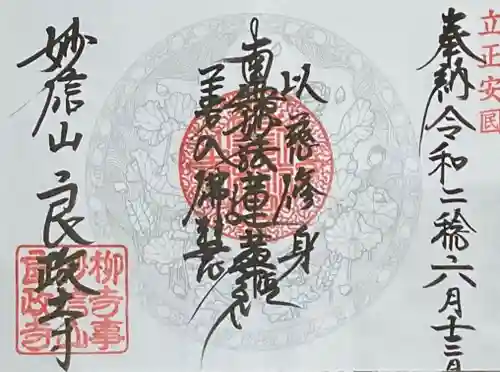 立正安囻
奉納 令和二稔 六月十二日
以慈修身
南無妙法蓮華経
善入佛慧
妙信山 良政寺
柳寺事
妙信山
良政寺